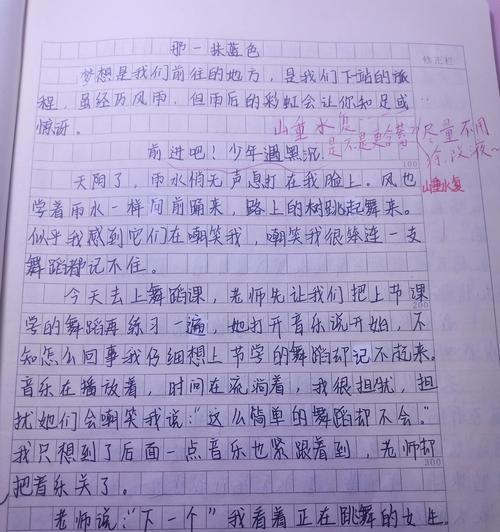 那一抹蓝色
修正栏
梦想是我们前往的地方，是我们下站的旅
程，虽经历风雨，但雨后的彩虹会让你知足或
惊讶。
山重水复
是不是更合适？
尽量不用
涂改液～
前进吧！少年遇黑沉
100
山重水复
天阴了，雨水悄无声息打在我脸上。风也
学着雨水一样向前踊来，路上的树跳起舞来。
似乎我感到它们在嘲笑我，嘲笑我很笨连一支
舞蹈都记不住。
今天去上舞蹈课，老师先让我们把上节课
200
学的舞蹈再练习一遍，她打开音乐说开始，不
知怎么回事我仔细想上节学的舞蹈却记不起来。
音乐在播放着，时间在流淌着，我很担忧，担
扰她们会嘲笑我说：“这么简单的舞蹈却不会。”
我只想到了后面一点音乐也紧跟着到，老师却
300
把音乐关了。
老师说：“下一个”我看着正在跳舞的女生